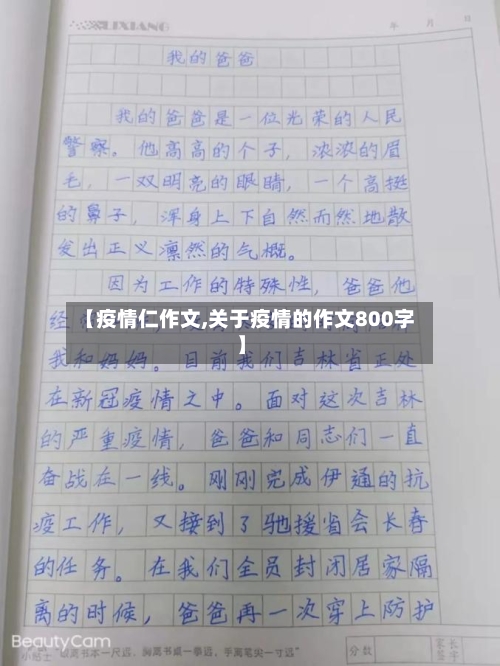 LIXIANG
年 月 日
我的爸爸
我的爸爸是一位光荣的人民
警察。他高高的个子，浓浓的眉
毛，一双明亮的眼睛，一个高挺
的鼻子，浑身上下自然而然地散
发出正义凛然的气概。
因为工作的特殊性，爸爸他
经
【疫情仁作文,关于疫情的作文800字
】
我和妈妈。目前我们吉林省正处
在新冠疫情之中。面对这次吉林
的严重疫情，爸爸和同志们一直
奋战在一线。刚刚完成伊通的抗
疫工作，又接到了驰援省会长春
的任务。在我们全员封闭居家隔
离的时候，爸爸再一次穿上防护
BeautyCam
小贴士 眼离书本一尺远，胸离书桌一拳远，手离笔尖一寸远
分数
家长
签字